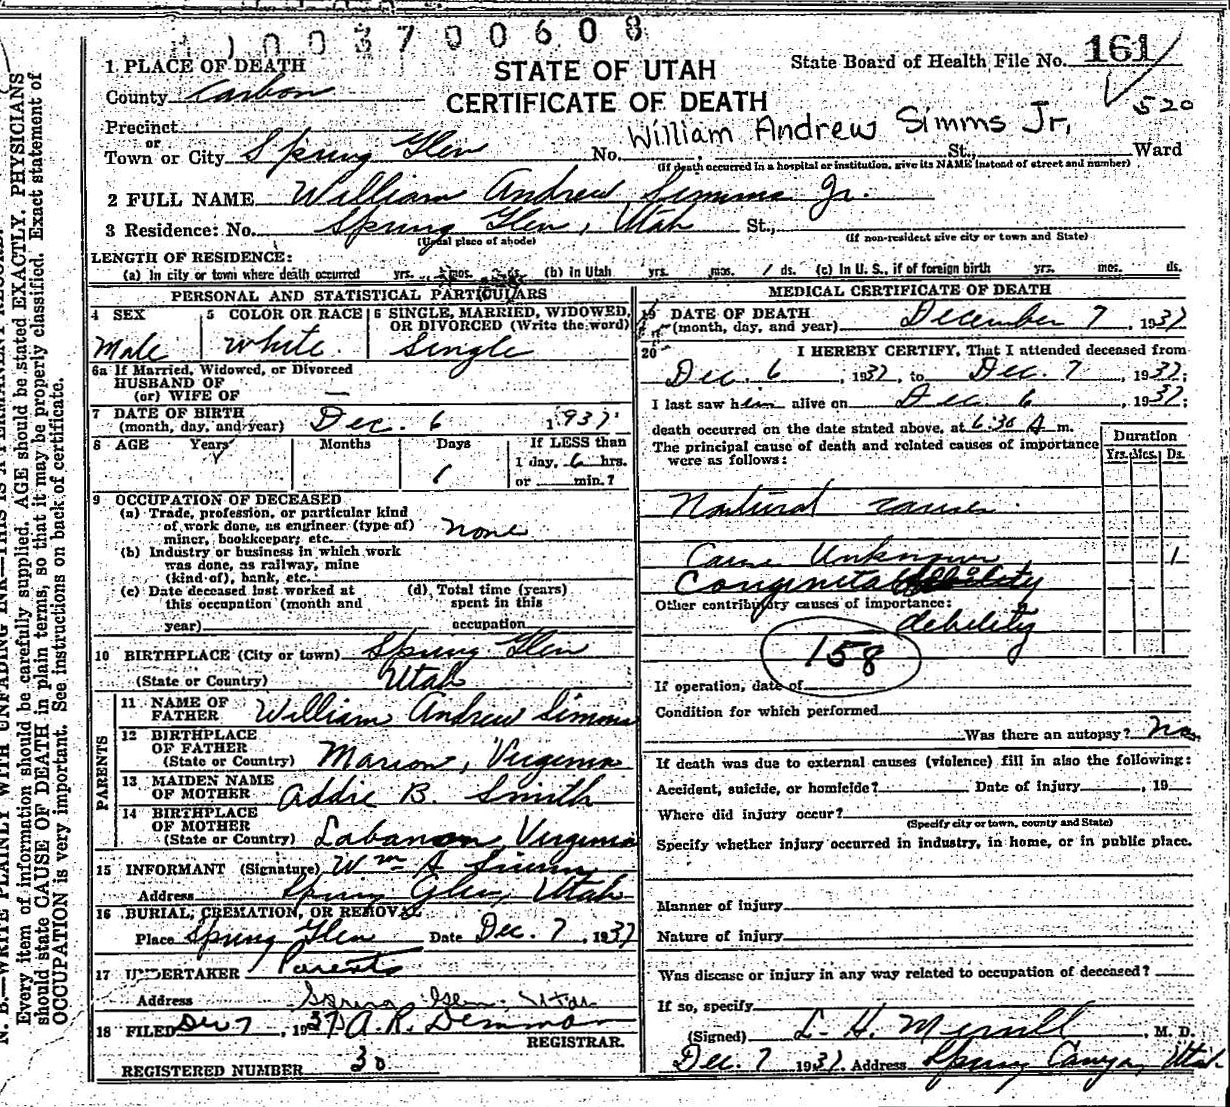 1003700608
STATE OF UTAH
CERTIFICATE OF DEATH
State Board of Health File No. 161
520
1 PLACE OF DEATH
County Carbon
Precinct
or
Town or City Spring Glen No. St., Ward
William Andrew Simms Jr.
(If death occurred in a hospital or institution, give its NAME instead of street and number)
2 FULL NAME William Andrew Simms Jr.
3 Residence: No. Spring Glen, Utah St.,
(Usual place of abode) (If non-resident give city or town and State)
LENGTH OF RESIDENCE:
(a) In city or town where death occurred yrs. mos. ds. (b) in Utah yrs. mos. 1 ds. (c) In U. S., if of foreign birth yrs. mos. ds.
PERSONAL AND STATISTICAL PARTICULARS
4 SEX
Male
5 COLOR OR RACE
White
6 SINGLE, MARRIED, WIDOWED,
OR DIVORCED (Write the word)
Single
6a If Married, Widowed, or Divorced
HUSBAND OF
(or) WIFE OF —
7 DATE OF BIRTH
(month, day, and year) Dec. 6 1937
8 AGE Years Months Days If LESS than
1 1 day, 6 hrs.
or min.?
9 OCCUPATION OF DECEASED
(a) Trade, profession, or particular kind
of work done, as engineer (type of)
miner, bookkeeper, etc. none
(b) Industry or business in which work
was done, as railway, mine
(kind of), bank, etc.
(c) Date deceased last worked at
this occupation (month and
year)
(d) Total time (years)
spent in this
occupation
10 BIRTHPLACE (City or town) Spring Glen
(State or Country) Utah
PARENTS
11 NAME OF
FATHER William Andrew Simms
12 BIRTHPLACE
OF FATHER
(State or Country) Marion, Virginia
13 MAIDEN NAME
OF MOTHER Addie B. Smith
14 BIRTHPLACE
OF MOTHER
(State or Country) Labanon, Virginia
15 INFORMANT (Signature) Wm A Simms
Address Spring Glen, Utah
16 BURIAL, CREMATION, OR REMOVAL
Place Spring Glen Date Dec. 7, 1937
17 UNDERTAKER Parents
Address Spring Glen Utah
18 FILED Dec 7, 1937 A. R. Demman
REGISTRAR.
REGISTERED NUMBER 30
MEDICAL CERTIFICATE OF DEATH
19 DATE OF DEATH
(month, day, and year) December 7, 1937
20 I HEREBY CERTIFY, That I attended deceased from
Dec. 6, 1937, to Dec. 7, 1937;
I last saw him alive on Dec 6, 1937;
death occurred on the date stated above, at 6:30 A m.
The principal cause of death and related causes of importance
were as follows:
Duration
Yrs. Mos. Ds.
Natural causes.
Cause Unknown 1
Congenital debility
Other contributory causes of importance:
debility
158
If operation, date of
Condition for which performed
Was there an autopsy? No
If death was due to external causes (violence) fill in also the following:
Accident, suicide, or homicide? Date of injury , 19
Where did injury occur?
(Specify city or town, county and State)
Specify whether injury occurred in industry, in home, or in public place.
Manner of injury
Nature of injury
Was disease or injury in any way related to occupation of deceased?
If so, specify
(Signed) L. H. Merrill, M. D.
Dec. 7 1937. Address Spring Canyon, Utah
N. B.—WRITE PLAINLY WITH UNFADING INK—THIS IS A PERMANENT RECORD.
Every item of information should be carefully supplied. AGE should be stated EXACTLY. PHYSICIANS
should state CAUSE OF DEATH in plain terms, so that it may be properly classified. Exact statement of
OCCUPATION is very important. See instructions on back of certificate.